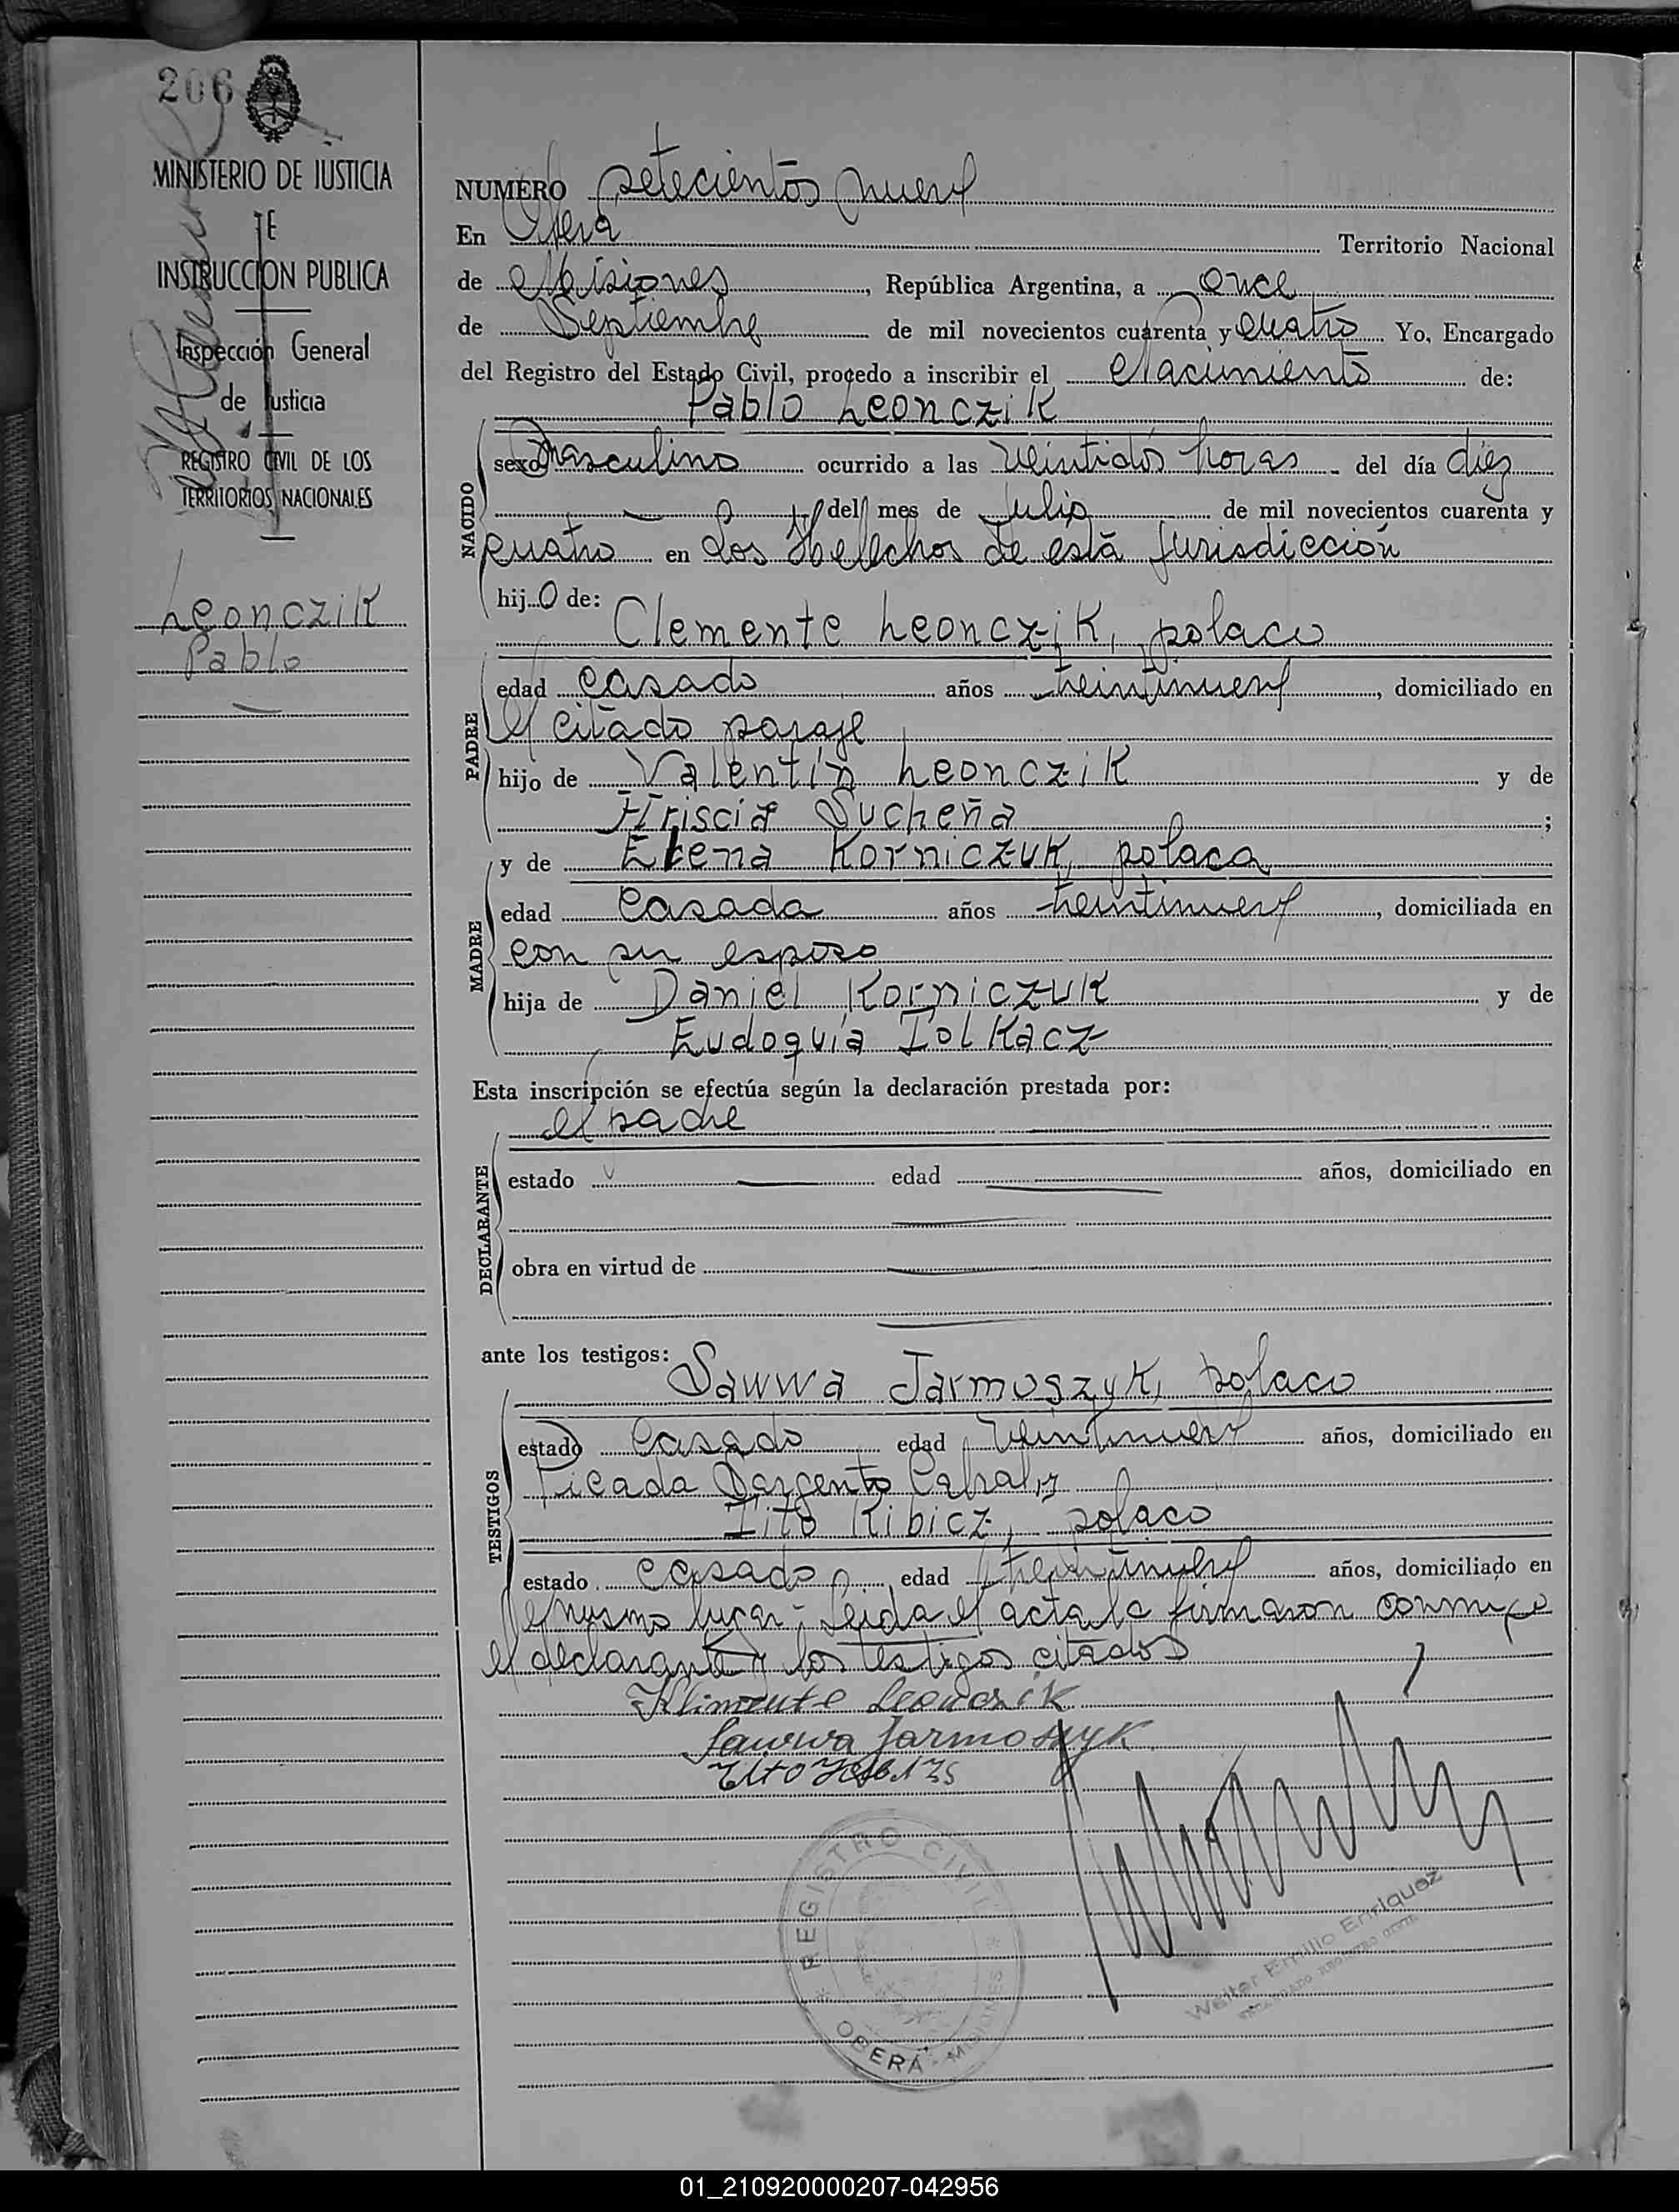 206
MINISTERIO DE JUSTICIA
E
INSTRUCCION PUBLICA
Inspección General
de Justicia
REGISTRO CIVIL DE LOS
TERRITORIOS NACIONALES
Leonczik
Pablo
NUMERO setecientos nueve
En Oberá Territorio Nacional
de Misiones, República Argentina, a once
de Septiembre de mil novecientos cuarenta y cuatro Yo, Encargado
del Registro del Estado Civil, procedo a inscribir el Nacimiento de:
Pablo Leonczik
NACIDO
sexo masculino ocurrido a las veintidós horas del día diez
del mes de Julio de mil novecientos cuarenta y
cuatro en Los Helechos de está jurisdicción
hijo de:
Clemente Leonczik, polaco
PADRE
edad casado años treintinueve, domiciliado en
el citado paraje
hijo de Valentín Leonczik y de
Hriscia Sucheña;
y de Elena Korniczuk, polaca
MADRE
edad casada años treintinueve, domiciliada en
con su esposo
hija de Daniel Korniczuk y de
Eudoquía Tolkacz
Esta inscripción se efectúa según la declaración prestada por:
el padre
DECLARANTE
estado edad años, domiciliado en
obra en virtud de
ante los testigos:
Sawwa Jarmoszyk, polaco
TESTIGOS
estado casado edad veintinueve años, domiciliado en
Picada Sargento Cabral y
Tito Kibicz, polaco
estado casado, edad treintinueve años, domiciliado en
el mismo lugar. Leida el acta la firmaron conmigo
el declarante y los testigos citados
Klimente Leonczik
Sawwa Jarmoszyk
REGISTRO CIVIL
OBERÁ - MISIONES
Walter Emilio Enriquez
ENCARGADO REGISTRO CIVIL
01_210920000207-042956